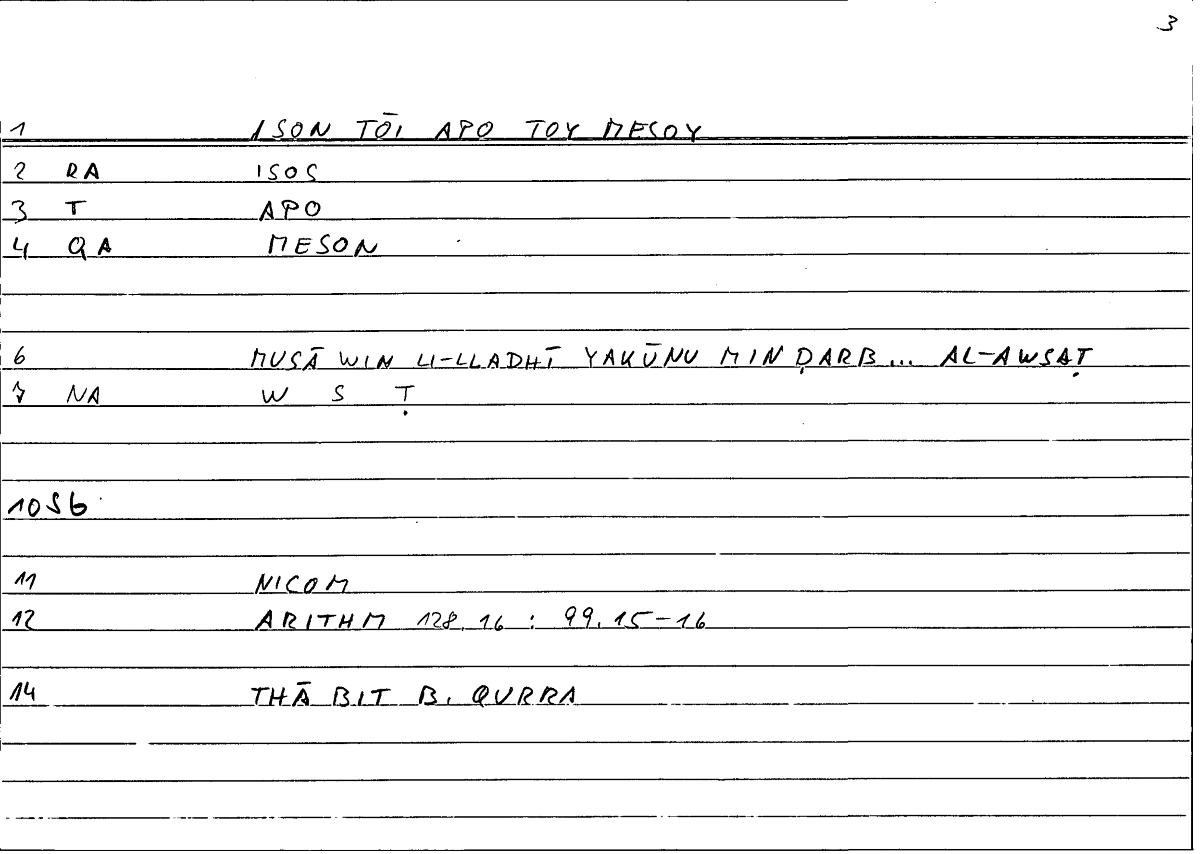 3
1 ISON TŌI APO TOY MESOY
2 RA ISOS
3 T APO
4 QA MESON
6 MUSĀWIN LI-LLADHĪ YAKŪNU MIN ḌARB... AL-AWSAṬ
7 NA W S Ṭ
10 56
11 NICOM
12 ARITHM 128.16 : 99.15-16
14 THĀBIT B. QURRA